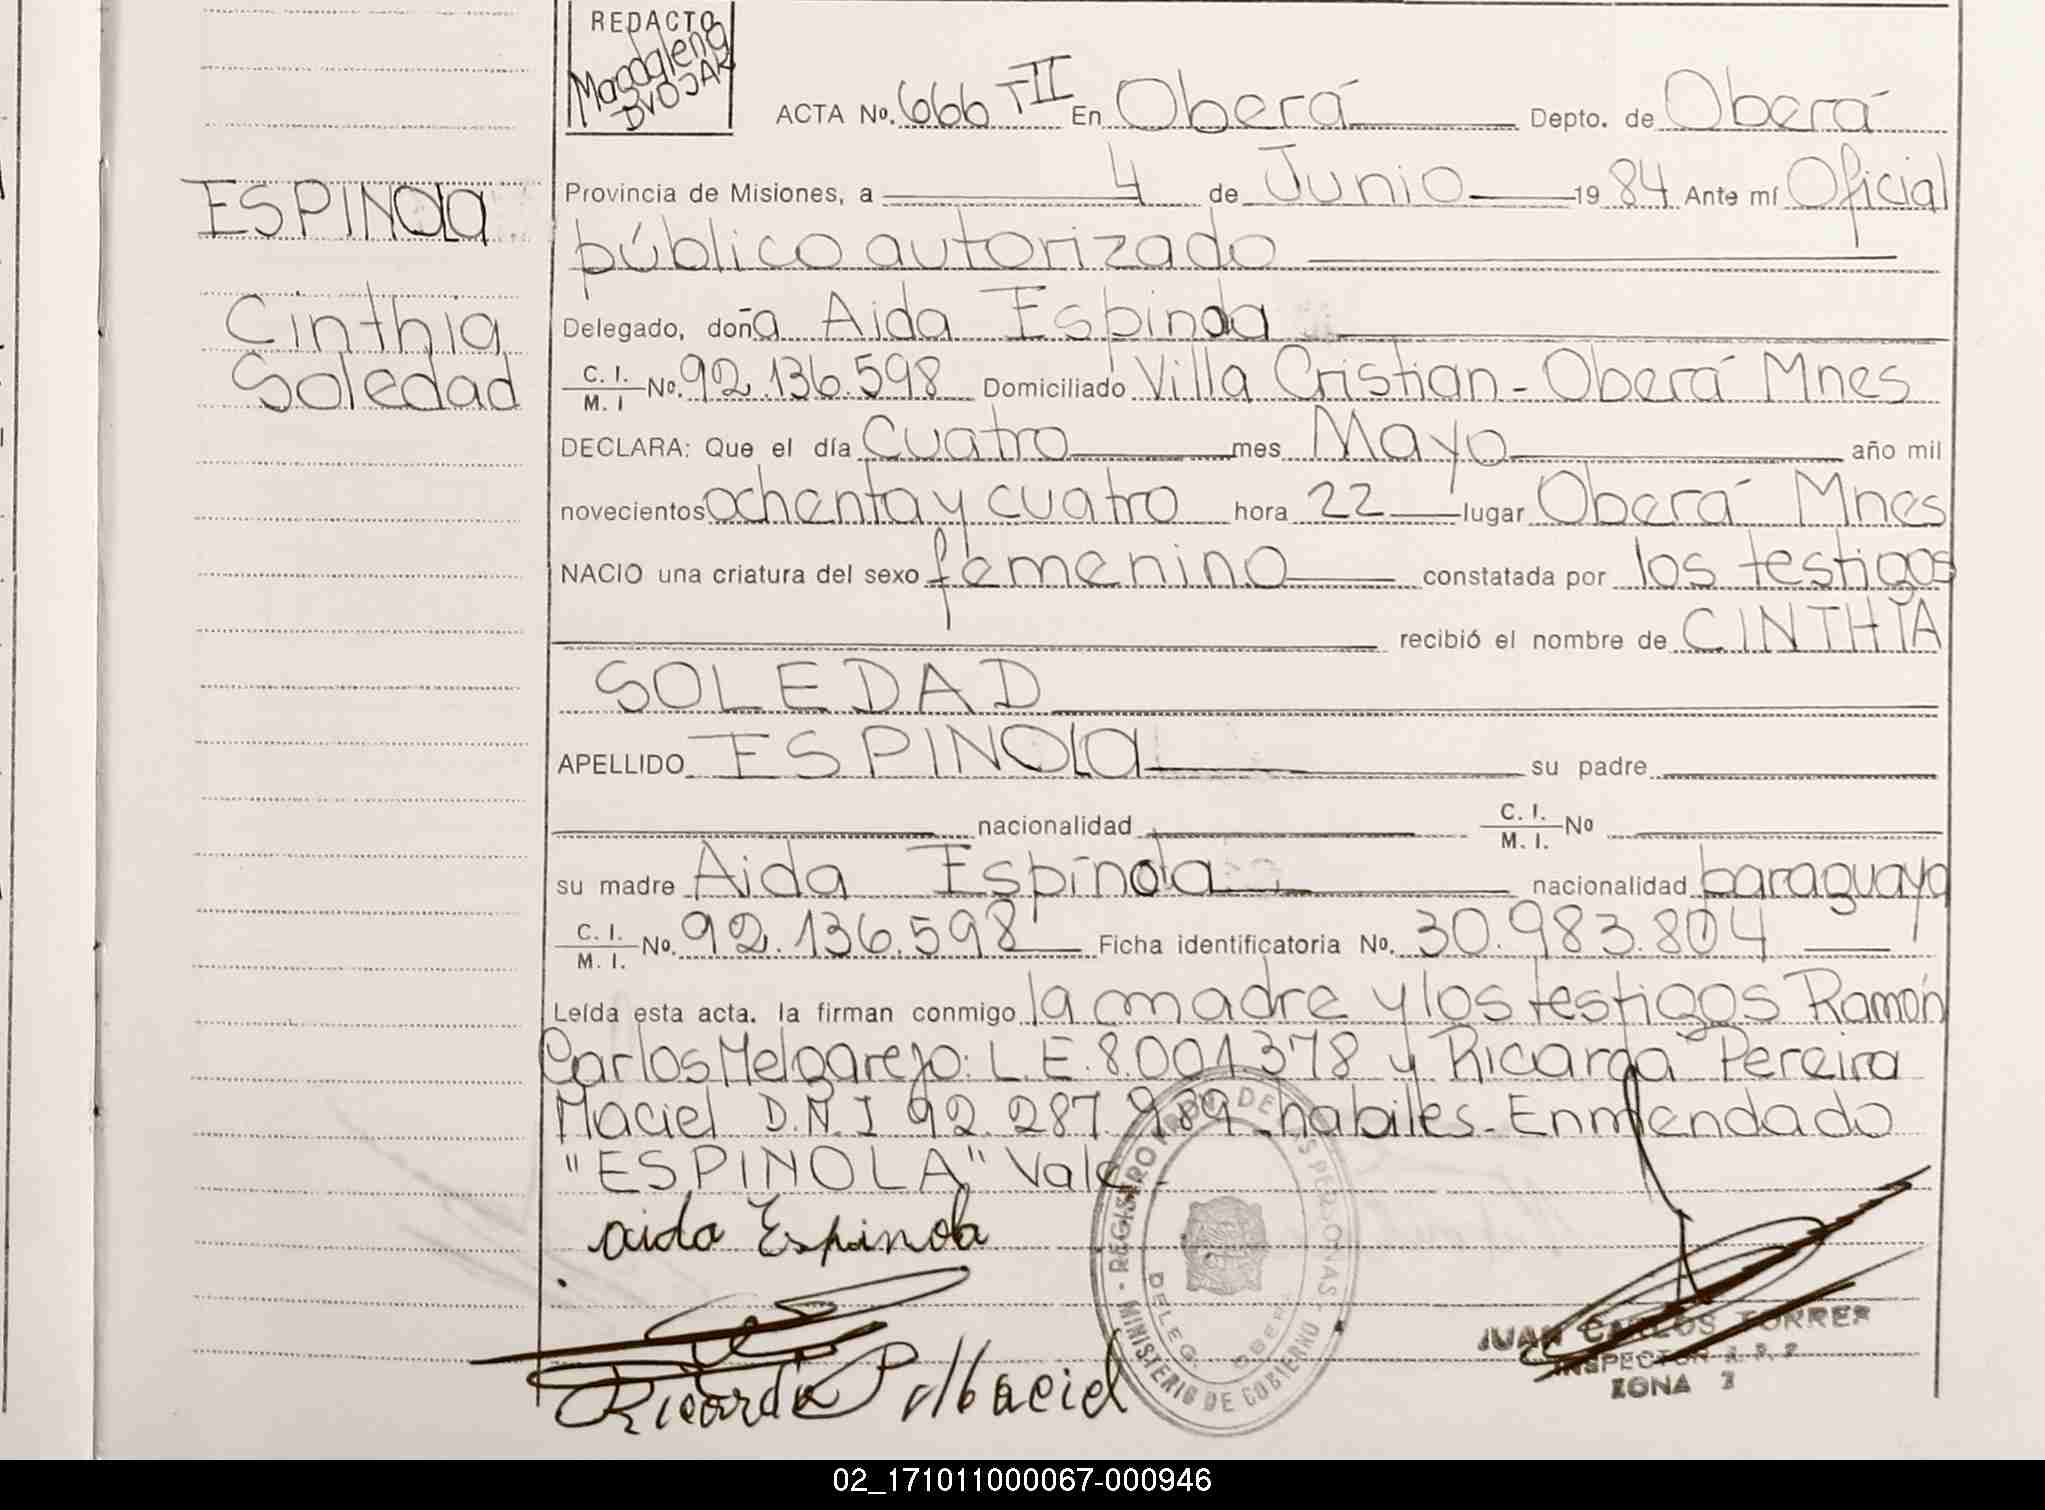 REDACTO
Magdalena
DVOJAK
ACTA Nº. 666 TII En Oberá Depto. de Oberá
Provincia de Misiones, a 4 de Junio 1984 Ante mí Oficial
público autorizado
Delegado, doña Aida Espinola
C. I. M. I Nº. 92.136.598 Domiciliado Villa Cristian - Oberá Mnes
DECLARA: Que el día Cuatro mes Mayo año mil
novecientos ochenta y cuatro hora 22 lugar Oberá Mnes
NACIO una criatura del sexo femenino constatada por los testigos
recibió el nombre de CINTHIA
SOLEDAD
APELLIDO ESPINOLA su padre
nacionalidad C. I. M. I. Nº
su madre Aida Espínola nacionalidad paraguaya
C. I. M. I. Nº. 92.136.598 Ficha identificatoria Nº. 30.983.804
Leída esta acta. la firman conmigo la madre y los testigos Ramón
Carlos Melgarejo: L.E. 8.001378 y Ricarda Pereira
Maciel D.N.I 92.287.989 habiles - Enmendado
"ESPINOLA" Vale -
Aida Espinola
Ricarda P Maciel
ESPINOLA
Cinthia
Soledad
REGISTRO PROV. DE LAS PERSONAS
MINISTERIO DE GOBIERNO
DELEG. OBERA
JUAN CARLOS TORRES
INSPECTOR R. P. P
ZONA 3
02_171011000067-000946